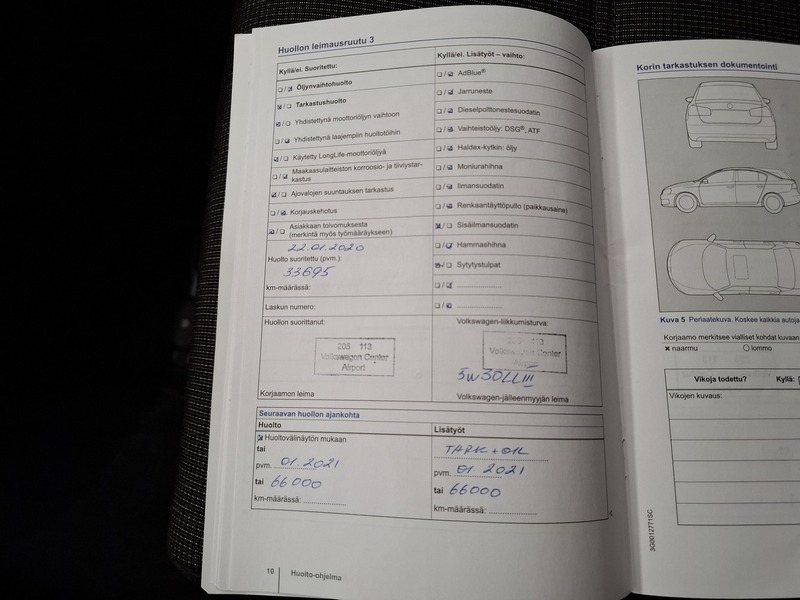 Huollon leimausruutu 3
Kyllä/ei. Suoritettu:
Öljynvaihtohuolto
Tarkastushuolto
Yhdistettynä moottoriöljyn vaihtoon
Yhdistettynä laajempiin huoltotöihin
Käytetty LongLife-moottoriöljyä
Maakaasulaitteiston korroosio- ja tiiviystar-
kastus
Ajovalojen suuntauksen tarkastus
Korjauskehotus
Asiakkaan toivomuksesta
(merkintä myös työmääräykseen)
22.01.2020
Huolto suoritettu (pvm.):
33695
km-määrässä:
Laskun numero:
Huollon suorittanut:
205 113
Volkswagen Center
Airport
Korjaamon leima
Kyllä/ei. Lisätyöt – vaihto:
AdBlue®
Jarruneste
Dieselpolttonestesuodatin
Vaihteistoöljy: DSG®, ATF
Haldex-kytkin: öljy
Moniurahihna
Ilmansuodatin
Renkaantäyttöpullo (paikkausaine)
Sisäilmansuodatin
Hammashihna
Sytytystulpat
Volkswagen-liikkumisturva:
205 113
Volkswagen Center
Airport
5W30LLIII
Volkswagen-jälleenmyyjän leima
Seuraavan huollon ajankohta
Huolto
Huoltovälinäytön mukaan
tai
pvm. 01.2021
tai 66000
km-määrässä:
Lisätyöt
TARK + ÖIL
pvm. 01 2021
tai 66000
km-määrässä:
10 Huolto-ohjelma
Korin tarkastuksen dokumentointi
Kuva 5 Periaatekuva. Koskee kaikkia autoja
Korjaamo merkitsee vialliset kohdat kuvaan
naarmu lommo
Vikoja todettu? Kyllä:
Vikojen kuvaus:
3G0012771SC